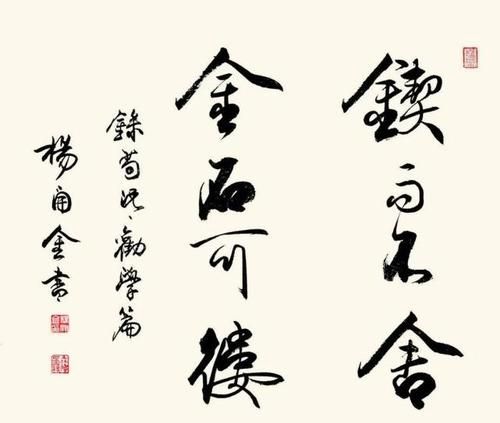 鍥而不舍
金石可鏤
錄荀況、勸學篇
楊金書